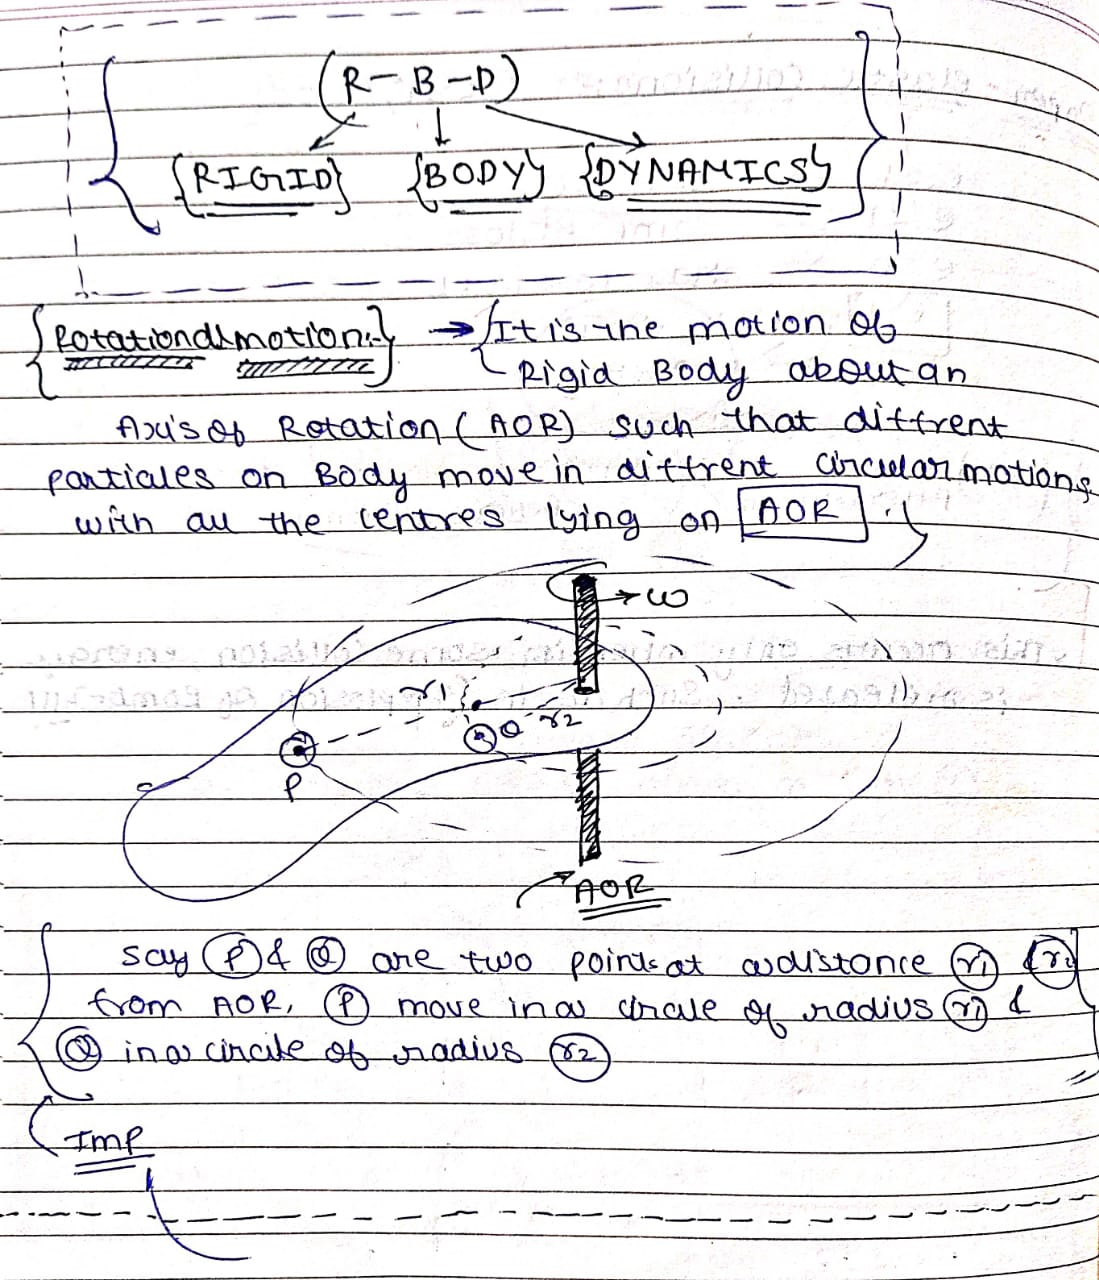 (R-B-D)
{RIGID} {BODY} {DYNAMICS}
{Rotational motion:-} → {It is the motion of
Rigid Body about an
Axis of Rotation (AOR) such that diffrent
particles on Body move in diffrent circular motions
with all the centres lying on AOR.
→ω
r1
Q r2
P
AOR
Say P & Q are two points at a distance r1 & r2
from AOR, P move in a circle of radius r1 &
Q in a circle of radius r2
Imp